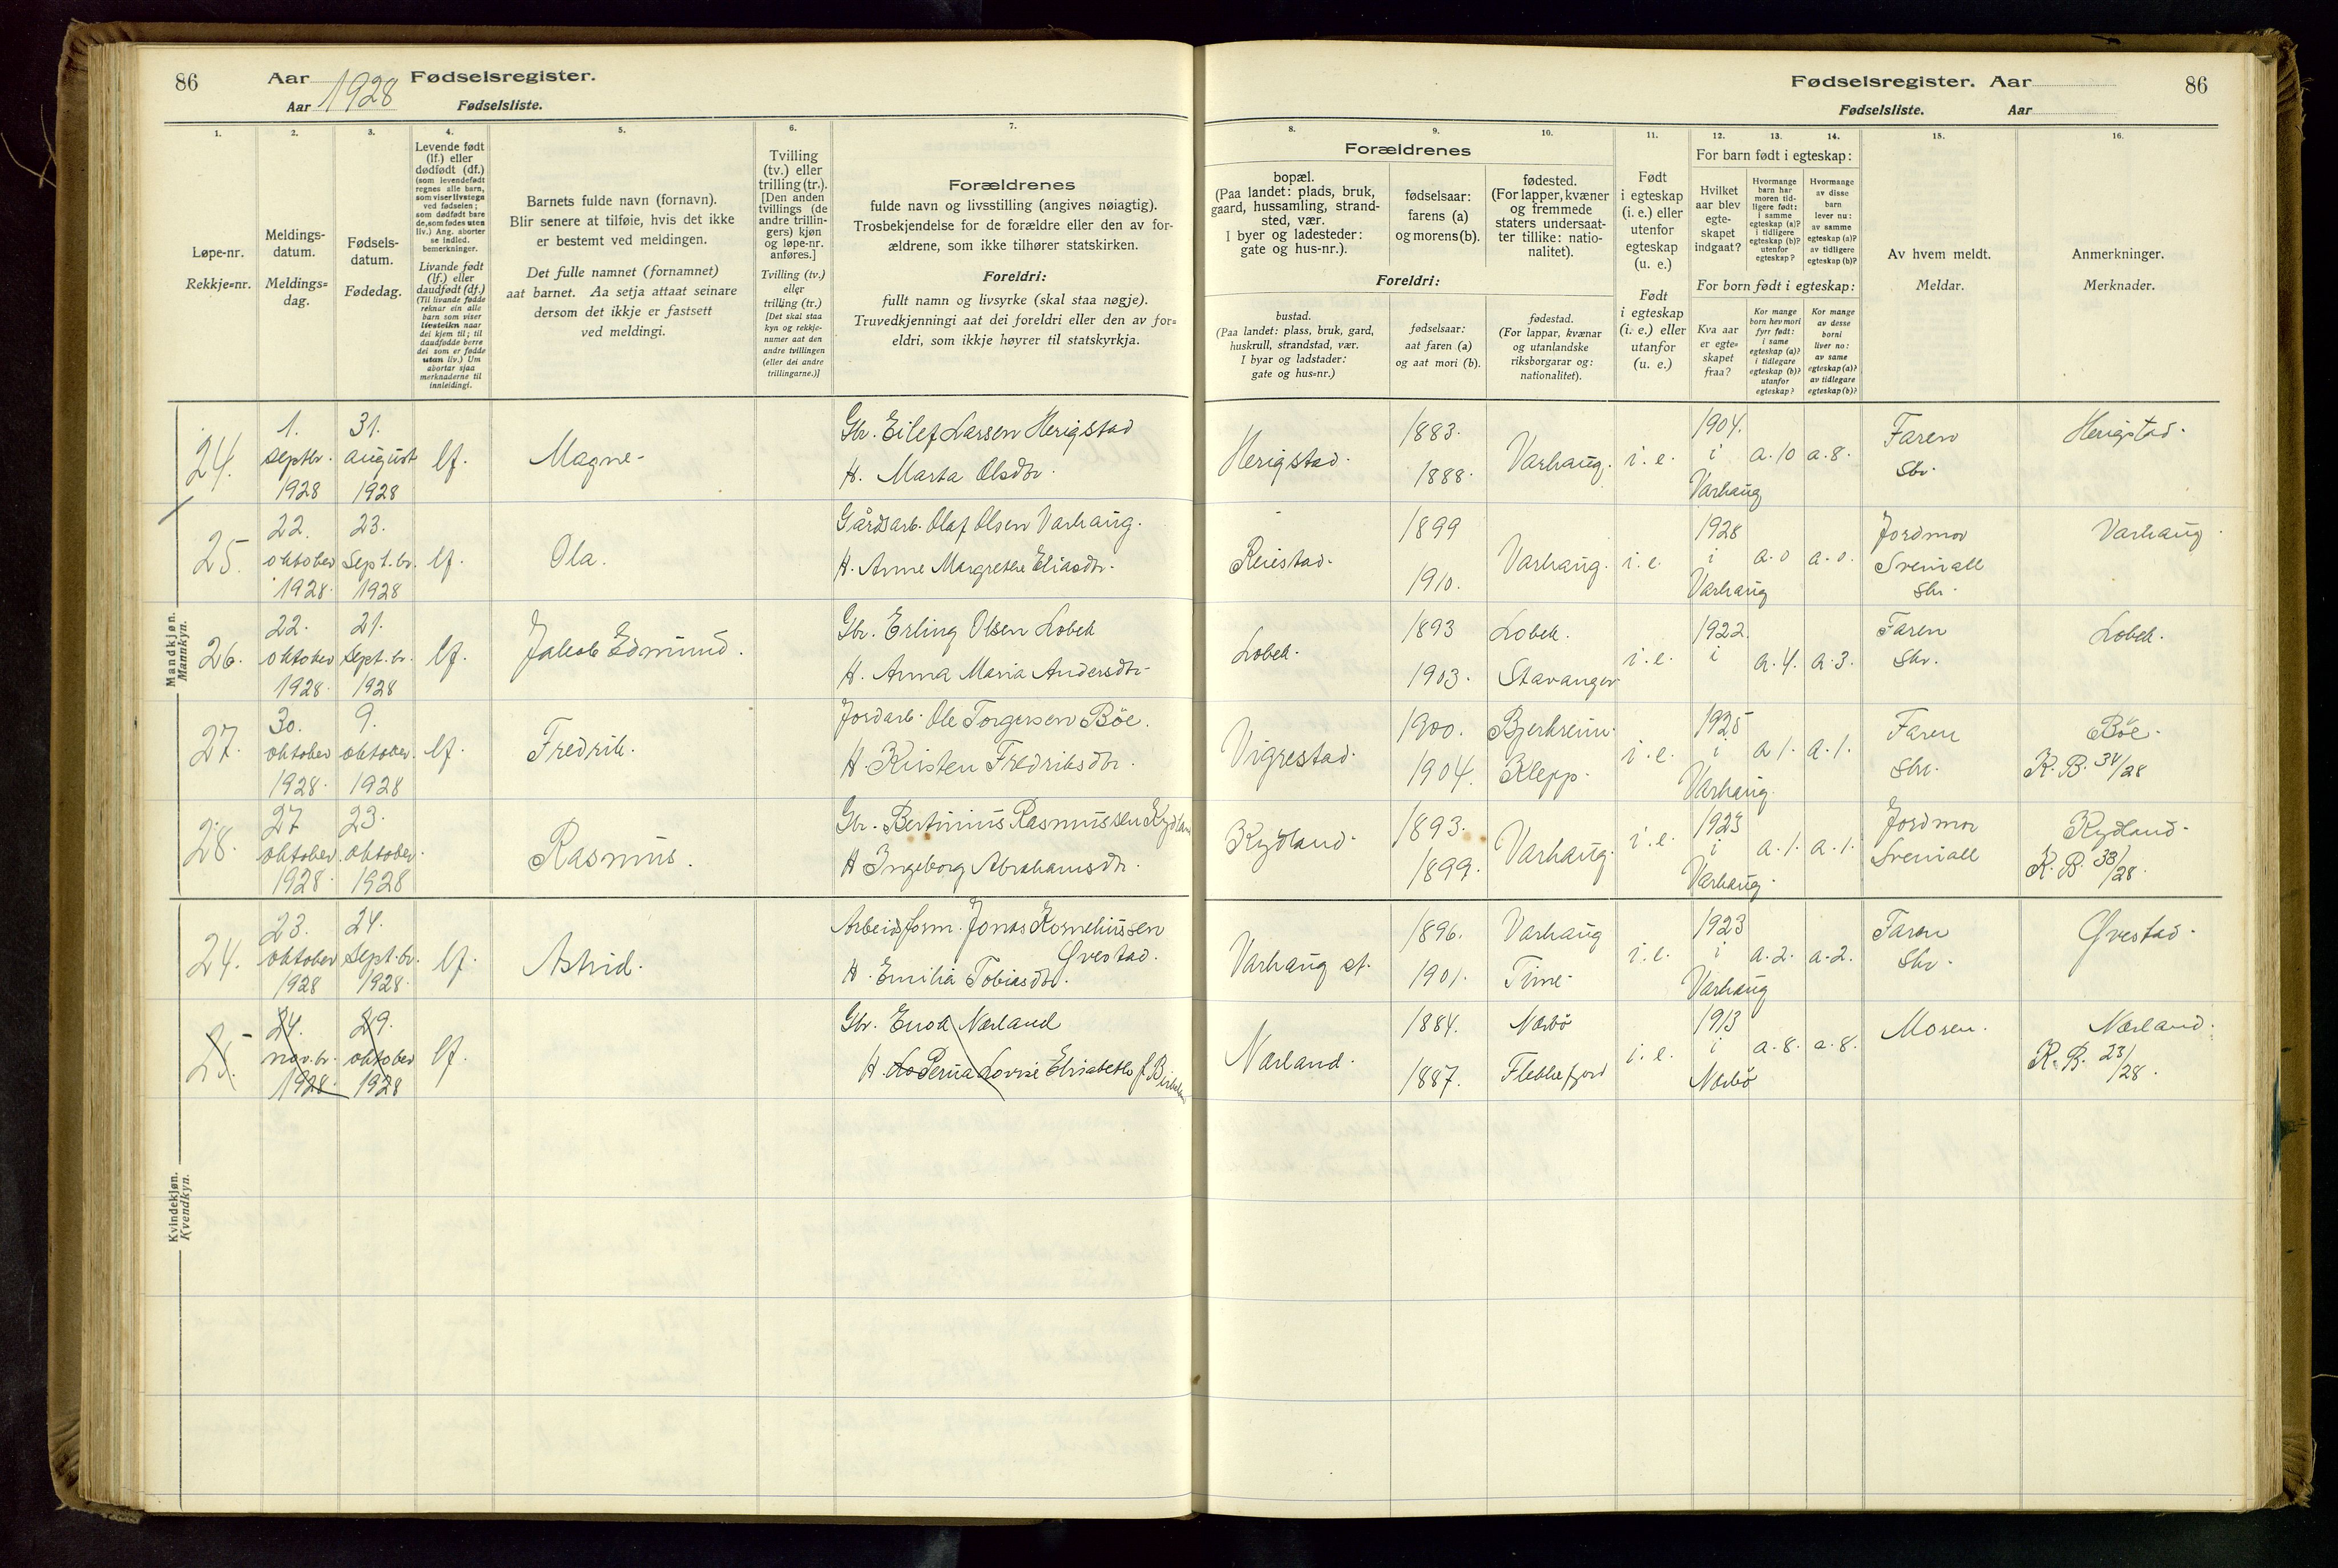 86 Aar 1928 Fødselsregister.
Aar Fødselsliste.
1. 2. 3. 4. 5. 6. 7.
Løpe-nr.
Rekkje=nr.
Meldings-
datum.
Meldings=
dag.
Fødsels-
datum.
Fødedag.
Levende født
(lf.) eller
dødfødt (df.)
(som levendefødt
regnes alle barn,
som viser livstegn
ved fødselen;
som dødfødt bare
de, som fødes uten
liv.) Ang. aborter
se indled.
bemerkninger.
Livande født
(lf.) eller
daudfødt (df.)
(Til livande fødde
reknar ein alle
barn som viser
livsteikn naar
dei kjem til; til
daudfødde berre
dei som er fødde
utan liv.) Um
abortar sjaa
merknaderne til
innleidingi.
Barnets fulde navn (fornavn).
Blir senere at tilføie, hvis det ikke
er bestemt ved meldingen.
Det fulle namnet (fornamnet)
aat barnet. Aa setja attaat seinare
dersom det ikkje er fastsett
ved meldingi.
Tvilling
(tv.) eller
trilling (tr.).
[Den anden
tvillings (de
andre trillin-
gers) kjøn
og løpe-nr.
anføres.]
Tvilling (tv.)
eller
trilling (tr.)
[Det skal staa
kyn og rekkje-
numer aat den
andre tvillingen
(eller dei andre
trillingarne.)]
Forældrenes
fulde navn og livsstilling (angives nøiagtig).
Trosbekjendelse for de forældre eller den av for-
ældrene, som ikke tilhører statskirken.
Foreldri:
fullt namn og livsyrke (skal staa nøgje).
Truvedkjenningi aat dei foreldri eller den av for=
eldri, som ikkje høyrer til statskyrkja.
Mandkjøn.
Mannkyn.
24.
1.
septbr.
1928
31.
august
1928
lf.
Magne
Gbr. Eilef Larsen Herigstad
H. Marta Olsdtr.
25.
22.
oktober
1928
23.
Sept.br.
1928
lf.
Ola.
Gårdsarb. Olaf Olsen Varhaug.
H. Anne Margrethe Eliasdtr.
26.
22.
oktober
1928
21.
Sept.br.
1928
lf.
Jakob Edmund.
Gbr. Erling Olsen Lobek
H. Anna Maria Andersdtr.
27.
30.
oktober
1928
9.
oktober.
1928
lf.
Fredrik.
Jordarb. Ole Torgersen Böe.
H. Kirsten Fredriksdtr.
28.
27
oktober
1928
23.
oktober.
1928
Rasmus.
Gbr. Bertinius Rasmussen Rydland
H Ingeborg Abrahamsdtr.
Kvindekjøn.
Kvendkyn.
24.
23.
oktober
1928
24.
Sept.br.
1928
lf.
Astrid.
Arbeidsform. Jonas Korneliussen
Qvestad.
H. Emilia Tobiasdtr.
25
24.
nov.br.
1928
29.
oktober
1928
lf.
Gbr. Enok Nærland
H. Lovise Elisabeth f.
Fødselsregister. Aar 86
Fødselsliste. Aar
8. 9. 10. 11. 12. 13. 14. 15. 16.
Forældrenes
bopæl.
(Paa landet: plads, bruk,
gaard, hussamling, strand-
sted, vær.
I byer og ladesteder:
gate og hus-nr.).
fødselsaar:
farens (a)
og morens (b).
fødested.
(For lapper, kvæner
og fremmede
staters undersaat-
ter tillike: natio-
nalitet).
Foreldri:
bustad.
(Paa landet: plass, bruk, gard,
huskrull, strandstad, vær.
I byar og ladstader:
gate og hus=nr.)
fødselsaar:
aat faren (a)
og aat mori (b).
fødestad.
(For lappar, kvænar
og utanlandske
riksborgarar og:
nationalitet).
Født
i egteskap
(i. e.) eller
utenfor
egteskap
(u. e.)
Født
i egteskap
(i. e.) eller
utanfor
egteskap
(u. e.)
For barn født i egteskap:
Hvilket
aar blev
egte-
skapet
indgaat?
Hvormange
barn har
moren tid-
ligere født:
i samme
egteskap (a)?
i tidligere
egteskap (b)?
utenfor
egteskap?
Hvormange
av disse
barn
lever nu:
av samme
egteskap (a)?
av tidligere
egteskap (b)?
For born født i egteskap:
Kva aar
er egte=
skapet
fraa?
Kor mange
born hev mori
fyrr født:
i same
egteskap (a)?
i tidlegare
egteskap (b)?
utanfor
egteskap?
Kor mange
av desse
borni
liver no:
av same
egteskap (a)?
av tidlegare
egteskap (b)?
Av hvem meldt.
Meldar.
Anmerkninger.
Merknader.
Herigstad.
1883.
1888.
Varhaug.
i. e.
1904.
i
Varhaug
a. 10
a. 8.
Faren
Skr.
Herigstad.
Reiestad.
1899
1910.
Varhaug.
i. e.
1928
i
Varhaug
a. 0
a. 0.
Jordmor
Sveniall
Skr.
Varhaug
Lobek.
1893
1903.
Lobek.
Stavanger
i. e.
1922.
i
a. 4.
a. 3.
Faren
Skr.
Lobek.
Vigrestad.
1900.
1904.
Bjerkreim.
Klepp.
i. e.
1925
i
Varhaug.
a 1.
a. 1.
Faren
Skr.
Böe.
K. B. 34/28
Rydland.
1893.
1899.
Varhaug.
i. e.
1923
i
Varhaug.
a. 1.
a. 1.
Jordmor
Sveniall
Rydland.
K. B. 33/28.
Varhaug st.
1896.
1901.
Varhaug
Time.
i. e.
1923
i
Varhaug
a. 2.
a. 2.
Faren
Skr.
Qvestad.
Nærland.
1884.
1887.
Nærbö
Flekkefjord
i. e.
1913
i
Nærbö
a. 8.
a. 8.
Moren.
Nærland.
K. B. 23/28.